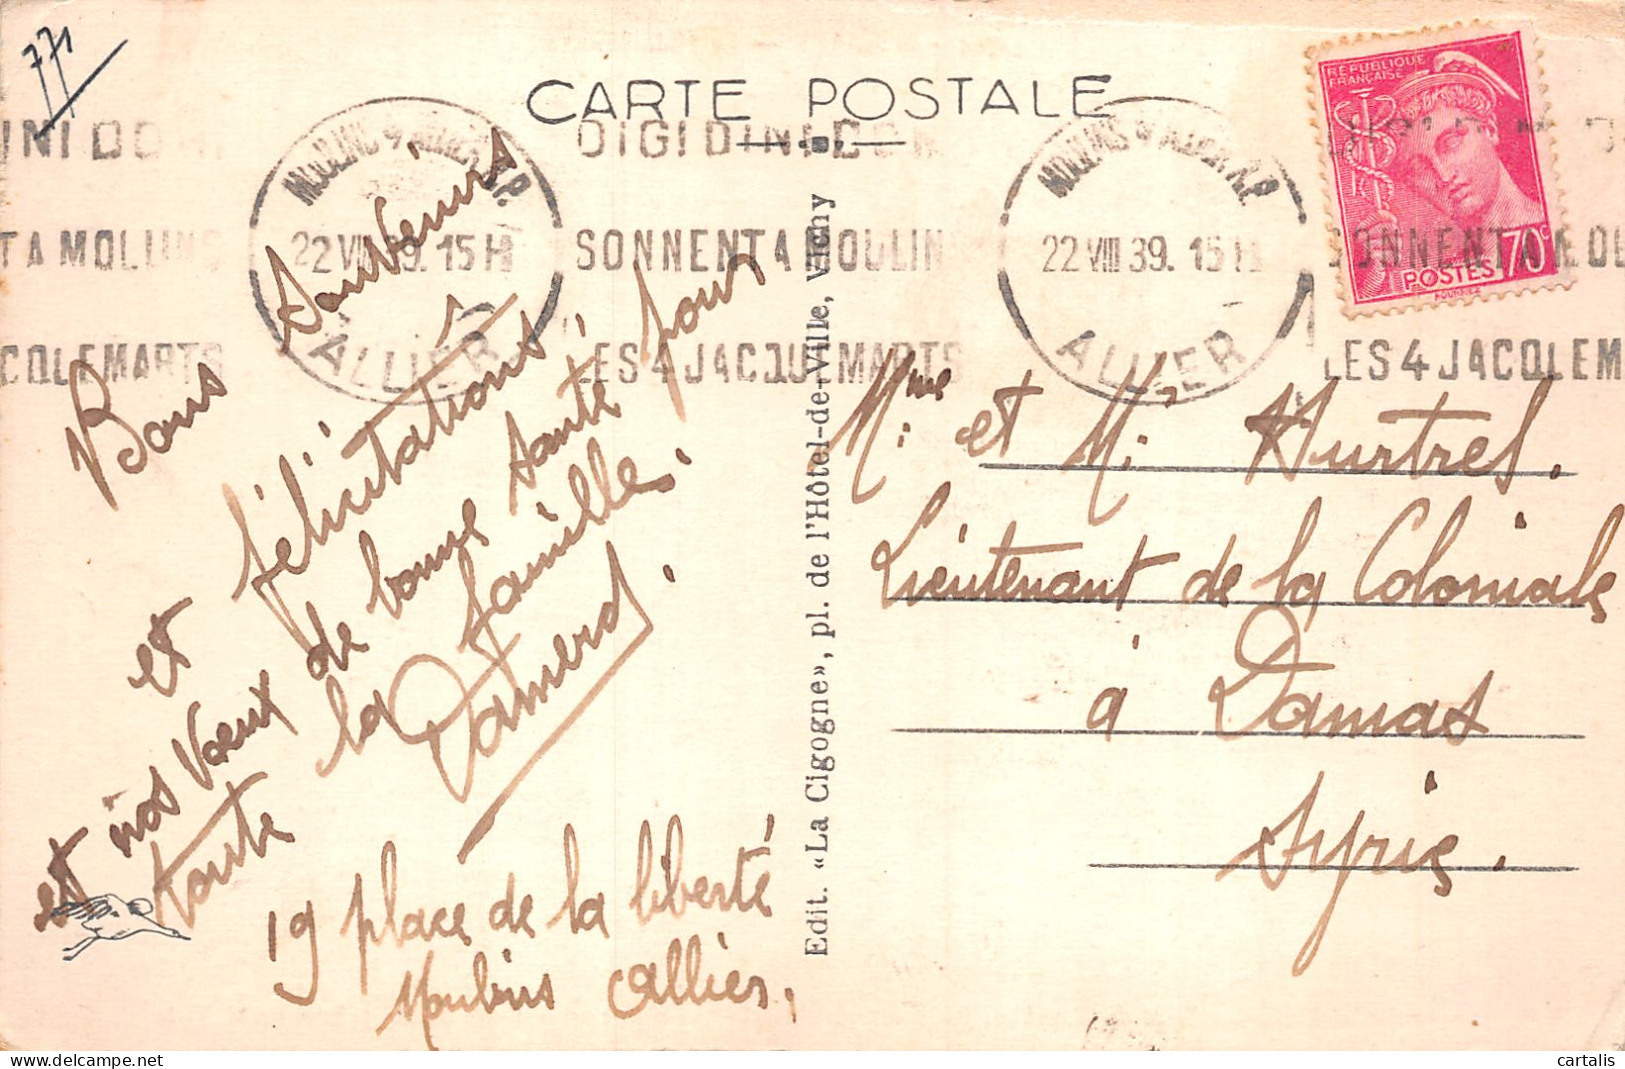 771
CARTE POSTALE
MOULINS S ALLIER R.P.
22 VIII 39. 15 H
ALLIER
DIGI DINI DON
SONNENT A MOULINS
LES 4 JACQUEMARTS
MOULINS S ALLIER R.P.
22 VIII 39. 15 H
ALLIER
SONNENT A MOU
LES 4 JACQUEM
INI DON
T A MOULINS
CQUEMARTS
REPUBLIQUE
FRANÇAISE
POSTES
70c
Bons Souvenirs
et félicitations
et nos Vœux de bonne santé pour
toute la famille.
19 place de la liberté
Moulins Allier.
Edit. «La Cigogne», pl. de l'Hôtel-de-Ville, Vichy
Mme et M. Hurtrel.
Lieutenant de la Coloniale
à Damas
Syrie.
cartalis